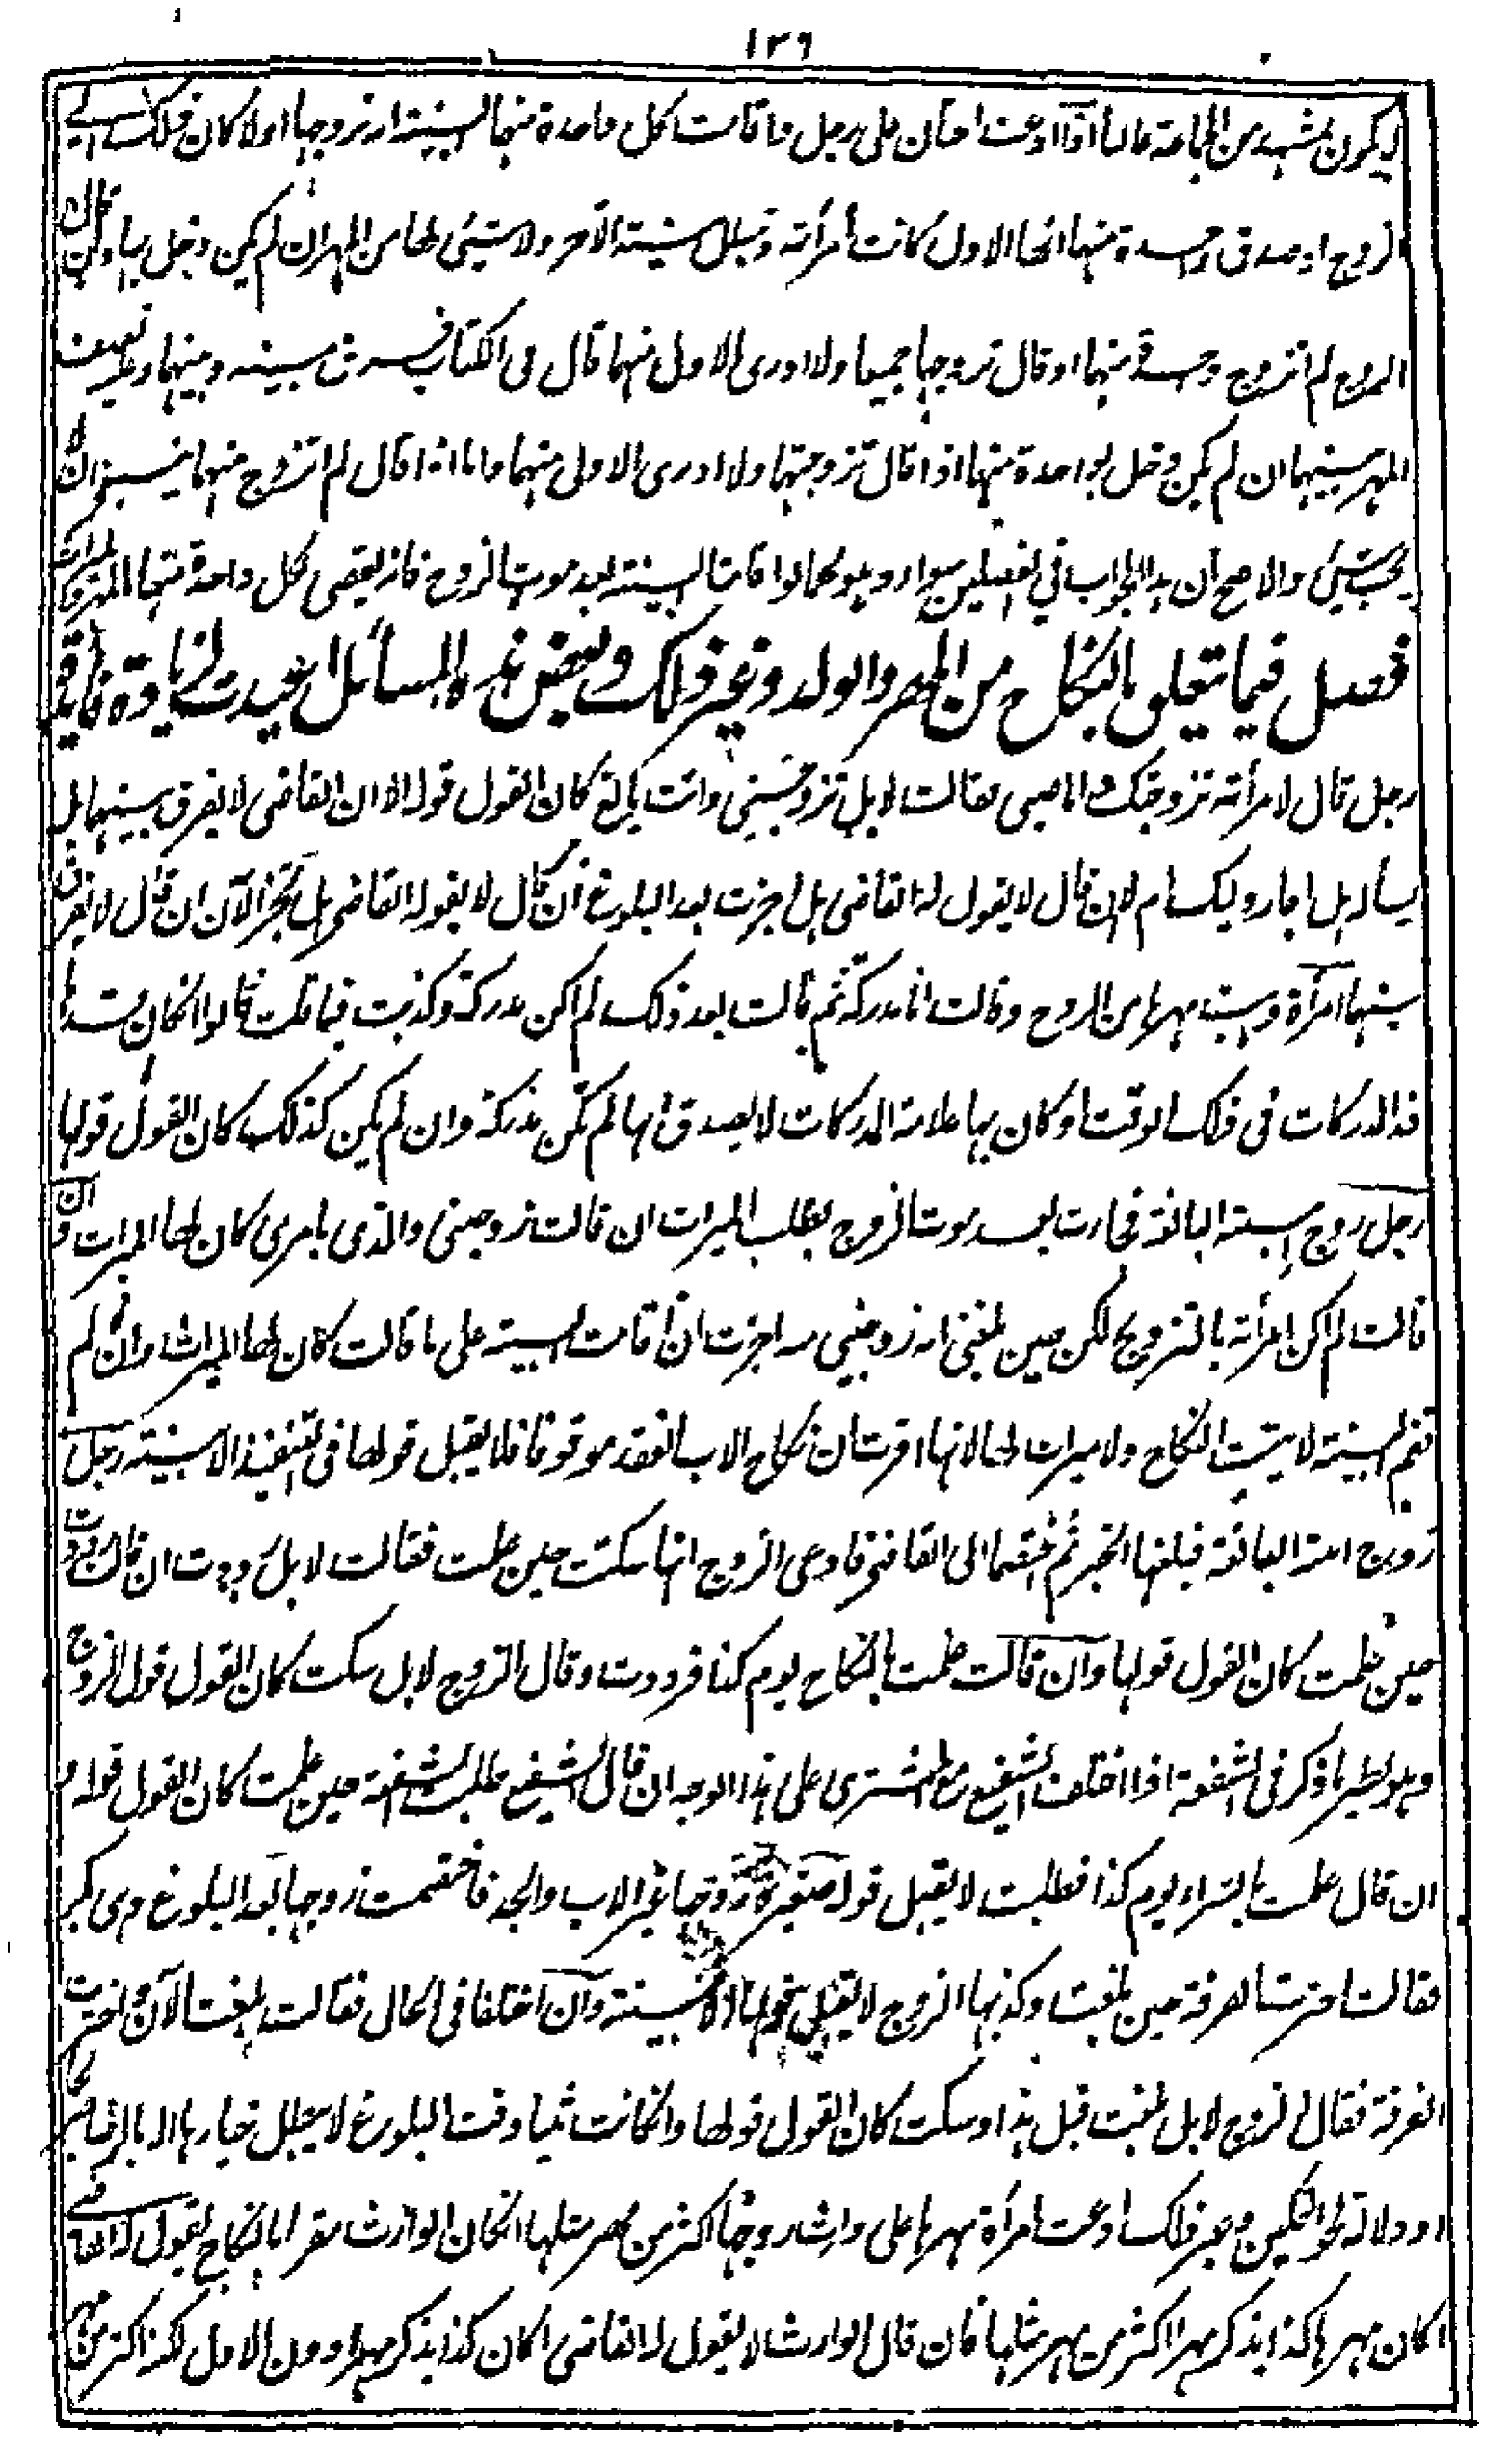 ١٣٩
ليكون لمشهد من الجماعة غالبا اذا ادعت اختان على رجل واقامت كل واحدة منهما البينة انه تزوجها اولا كان ذلك الى
الزوج ان صدق واحدة منهما انها الاول كانت امرأته وتبطل بينة الاخرى ولا شيئ لها من المهر ان لم يكن دخل بها وان قال
الزوج لم اتزوج واحدة منهما او قال تزوجتها جميعا ولا ادرى الاول منهما قال فى الكتاب فرق بينه وبينهما وعليه نصف
المهر بينهما ان لم يكن دخل بواحدة منهما اذا قال تزوجتهما ولا ادرى الاول منهما واما اذا قال لم اتزوج منهما ينبغى ان لا
يجب شيئ والاصح ان هذا الجواب فى الفصلين سواء وهو كما لو اقامتا البينة بعد موت الزوج فانه يقضى لكل واحدة منهما المهر والميراث
فصل فيما يتعلق بالنكاح من المهر والولد وغير ذلك وبعض هذه المسائل اعيدت لزيادة فائدة
رجل قال لامرأته تزوجتك وانا صبى فقالت لا بل تزوجتنى وانت بالغ كان القول قوله الا ان القاضى لا يفرق بينهما بل
يسأله هل اجاز وليك ام لا ان قال لا يقول له القاضى هل اجزت بعد البلوغ ان قال لا يقول القاضى هل تجيز الآن ان قال لا يفرق
بينهما امرأة وهبت مهرها من الزوج وقالت انا مدركة ثم قالت بعد ذلك لم اكن مدركة وكذبت فيما قلت قالوا ان كان قدها
قد المدركات فى ذلك الوقت او كان بها علامة المدركات لا يصدق انها لم تكن مدركة وان لم يكن كذلك كان القول قولها
رجل زوج ابنته البالغة فجاءت بعد موت الزوج بطلب الميراث ان قالت زوجنى والدى بامرى كان لها الميراث وان
قالت لم اكن امرته بالتزويج لكن حين بلغنى انه زوجنى اجزت ان اقامت البينة على ما قالت كان لها الميراث وان لم
تقم البينة لا يثبت النكاح ولا ميراث لها لانها اقرت ان نكاح الاب انعقد موقوفا فلا يقبل قولها فى التنفيذ الا ببينة رجل
زوج ابنته البالغة فبلغها الخبر ثم اختصما الى القاضى فادعى الزوج انها سكتت حين علمت فقالت لا بل رددت ان قالت رددت
حين علمت كان القول قولها وان قالت علمت بالنكاح يوم كذا فرددت وقال الزوج لا بل سكتت كان القول قول الزوج
وهو نظير ما ذكر فى الشفعة اذا اختلف الشفيع مع المشترى على هذا الوجه ان قال الشفيع طلبت الشفعة حين علمت كان القول قوله و
ان قال علمت بالشراء يوم كذا فطلبت لا يقبل قوله صغيرة زوجها غير الاب والجد فاختصمت زوجها بعد البلوغ وهى بكر
فقالت اخترت الفرقة حين بلغت وكذبها الزوج لا يقبل قولها الا ببينة وان اختلفا فى الحال فقالت بلغت الآن واخترت
الفرقة فقال الزوج لا بل بلغت قبل هذا وسكت كان القول قولها وان كانت ثيبا وقت البلوغ لا يبطل خيارها الا بالرضا صريحا
او دلالة نحو التمكين وغير ذلك ادعت امرأة مهرها على وارث زوجها اكثر من مهر مثلها ان كان الوارث مقرا بالنكاح يقول له القاضى
اكان مهرها كذا يذكر مهرا اكثر من مهر مثلها فان قال الوارث لا يقول له القاضى اكان كذا يذكر مهرا دون الاول لكنه اكثر من مهر